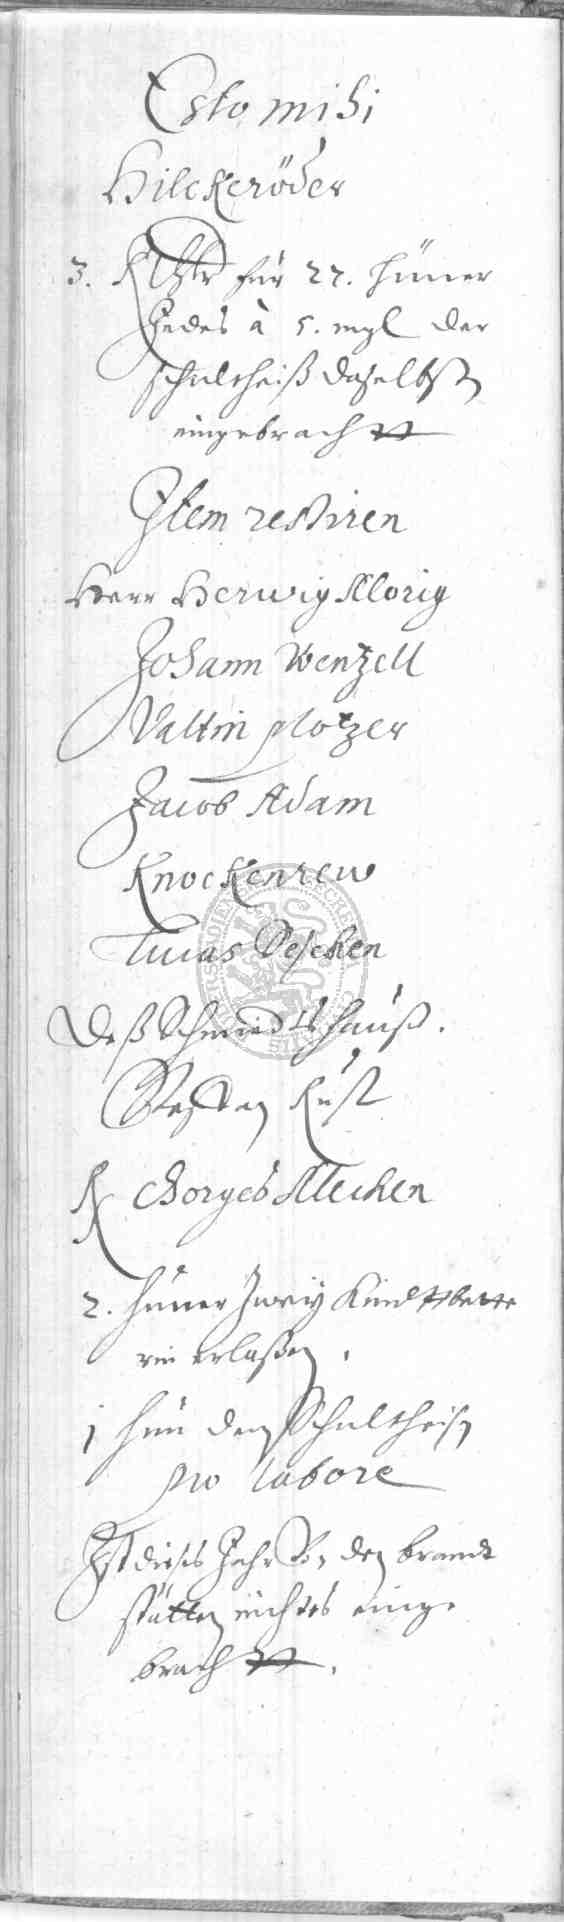 Esto mihi
Hilckeröder
3. für 27. hüner
Jedes à 5. mgl der
schultheiß daselbst
eingebracht
Item restiren
Herr Herwig Morig
Johann Wentzell
Valtin plotzer
Jacob Adam
Knockenrew
Lucas Deschen
Deß Schmiedts hauß.
Rust
Gorges Mechen
2. hüner Zweÿ Kindtbette
rin erlaßen.
1 hun dem Schultheiß
pro labore
Ist dieses Jahr von den brandt
stätten nichts einge
bracht.